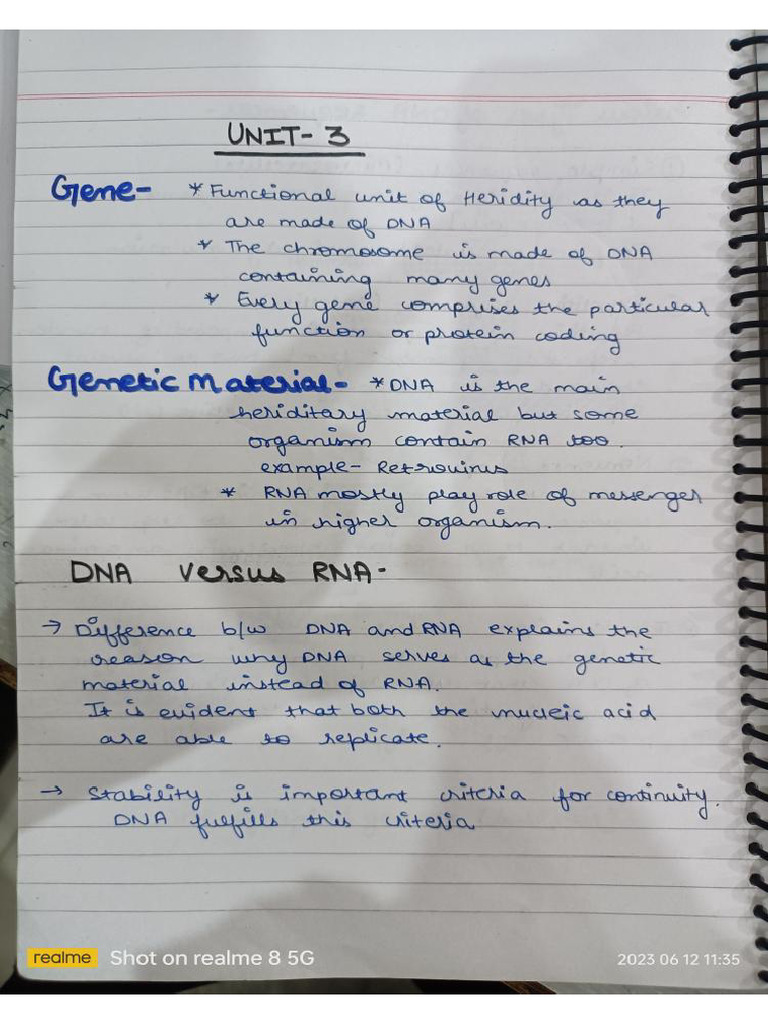 UNIT- 3
Gene- * Functional unit of Heridity as they
are made of DNA
* The chromosome is made of DNA
containing many genes
* Every gene comprises the particular
function or protein coding
Genetic Material- * DNA is the main
heriditary material but some
organism contain RNA too.
example- Retrovirus
* RNA mostly play role of messenger
in higher organism.
DNA versus RNA-
→ Difference b/w DNA and RNA explains the
reason why DNA serves as the genetic
material instead of RNA.
It is evident that both the nucleic acid
are able to replicate.
→ Stability is important criteria for continuity.
DNA fulfills this criteria
realme Shot on realme 8 5G 2023 06 12 11:35